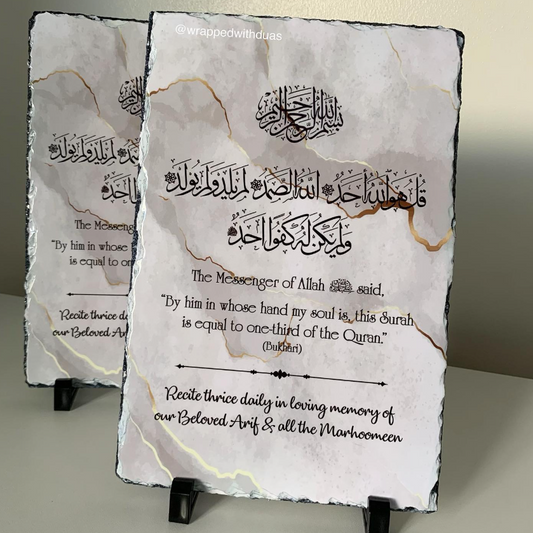 @wrappedwithduas
بسم الله الرحمن الرحيم
قُلْ هُوَ اللَّهُ أَحَدٌ اللَّهُ الصَّمَدُ لَمْ يَلِدْ وَلَمْ يُولَدْ
وَلَمْ يَكُن لَّهُ كُفُوًا أَحَدٌ
The Messenger of Allah ﷺ said,
"By him in whose hand my soul is, this Surah
is equal to one-third of the Quran."
(Bukhari)
Recite thrice daily in loving memory of
our Beloved Arif & all the Marhoomeen
The Messenger
"By him in whose
is equal to
Recite thrice daily
our Beloved Arif